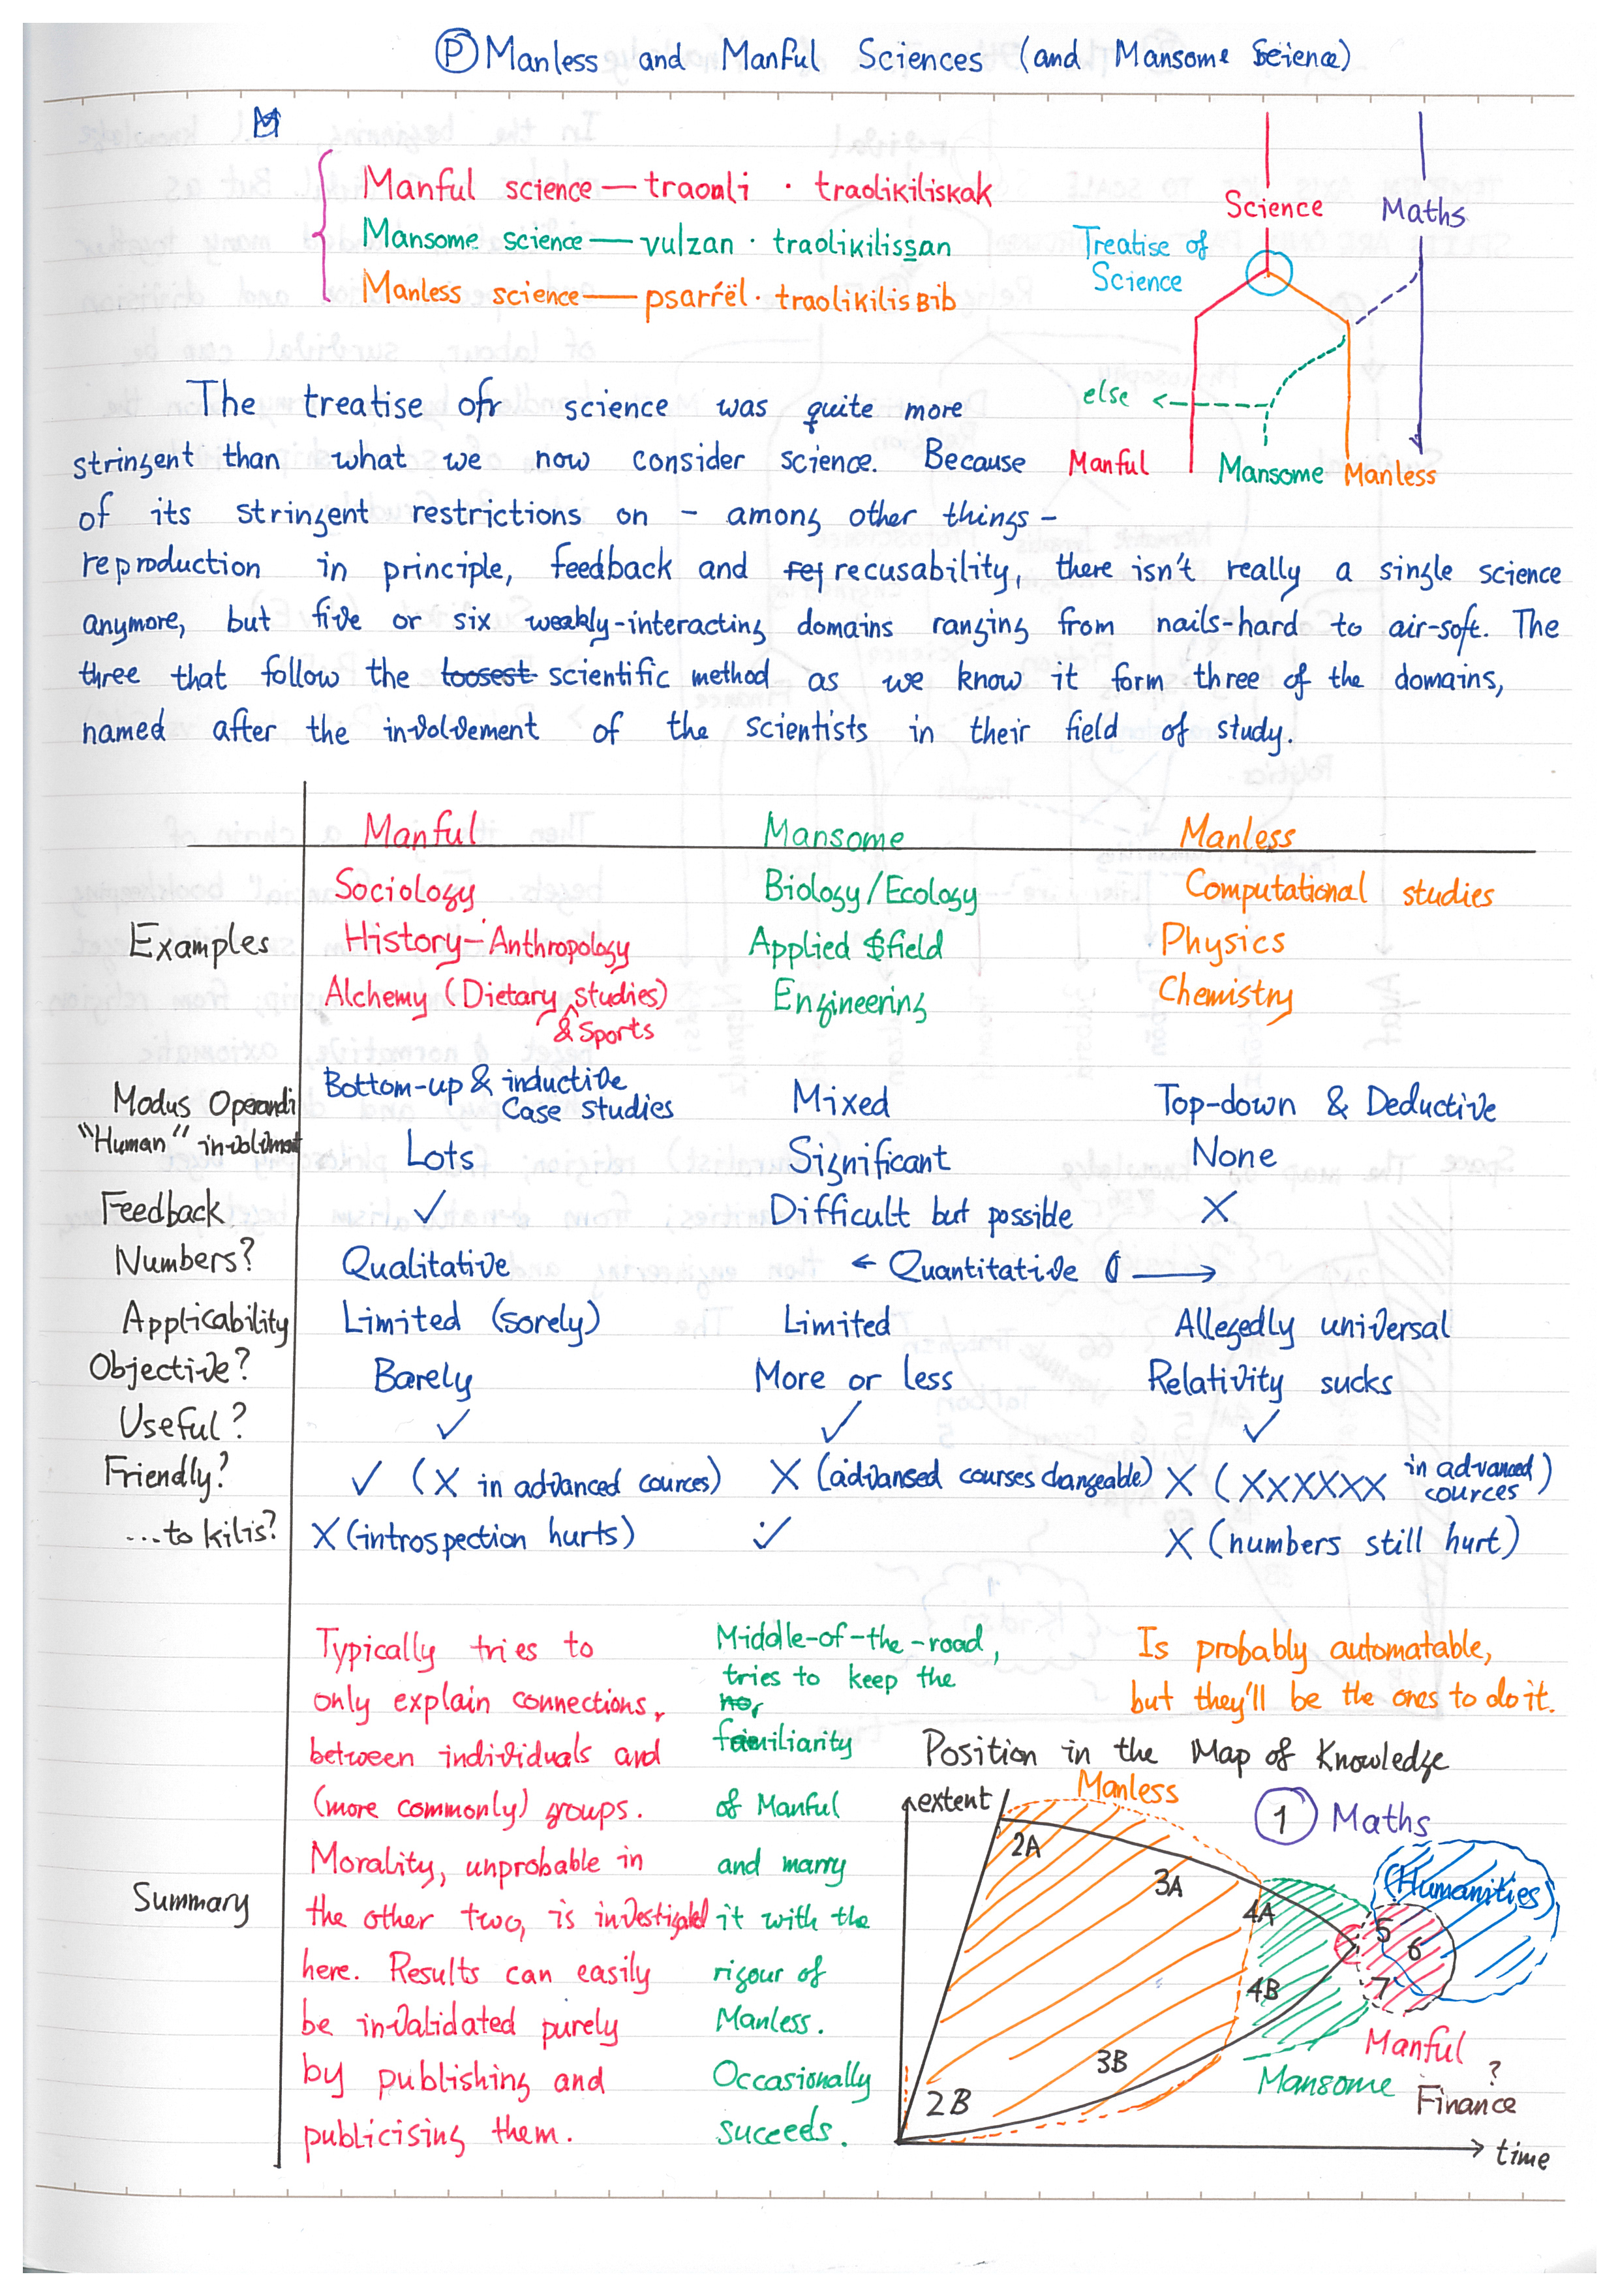 Ⓟ Manless and Manful Sciences (and Mansome Science)
Manful science — traoali · traolikiliskak
Mansome science — vulzan · traolikilissan
Manless science — psarrël · traolikilis Bib
Science
Maths
Treatise of
Science
else
Manful
Mansome
Manless
The treatise of science was quite more
stringent than what we now consider science. Because
of its stringent restrictions on - among other things -
reproduction in principle, feedback and recusability, there isn't really a single science
anymore, but five or six weakly-interacting domains ranging from nails-hard to air-soft. The
three that follow the loosest scientific method as we know it form three of the domains,
named after the involvement of the scientists in their field of study.
Manful Mansome Manless
Examples
Sociology Biology/Ecology Computational studies
History-Anthropology Applied field Physics
Alchemy (Dietary studies) Engineering Chemistry
& Sports
Modus Operandi Bottom-up & inductive Case studies Mixed Top-down & Deductive
"Human" involvment Lots Significant None
Feedback ✓ Difficult but possible X
Numbers? Qualitative ← Quantitative →
Applicability Limited (sorely) Limited Allegedly universal
Objective? Barely More or less Relativity sucks
Useful? ✓ ✓ ✓
Friendly? ✓ (X in advanced cources) X (advansed courses changeable) X (XXXXXX in advanced cources)
...to kilis? X (introspection hurts) ✓ X (numbers still hurt)
Summary
Typically tries to
only explain connections,
between individuals and
(more commonly) groups.
Morality, unprobable in
the other two, is investigated
here. Results can easily
be invalidated purely
by publishing and
publicising them.
Middle-of-the-road,
tries to keep the
familiarity
of Manful
and marry
it with the
rigour of
Manless.
Occasionally
succeeds.
Is probably automatable,
but they'll be the ones to do it.
Position in the Map of Knowledge
extent
Manless
1 Maths
2A
3A
4A
(Humanities)
5
6
7
4B
3B
2B
Manful
Mansome
?
Finance
time